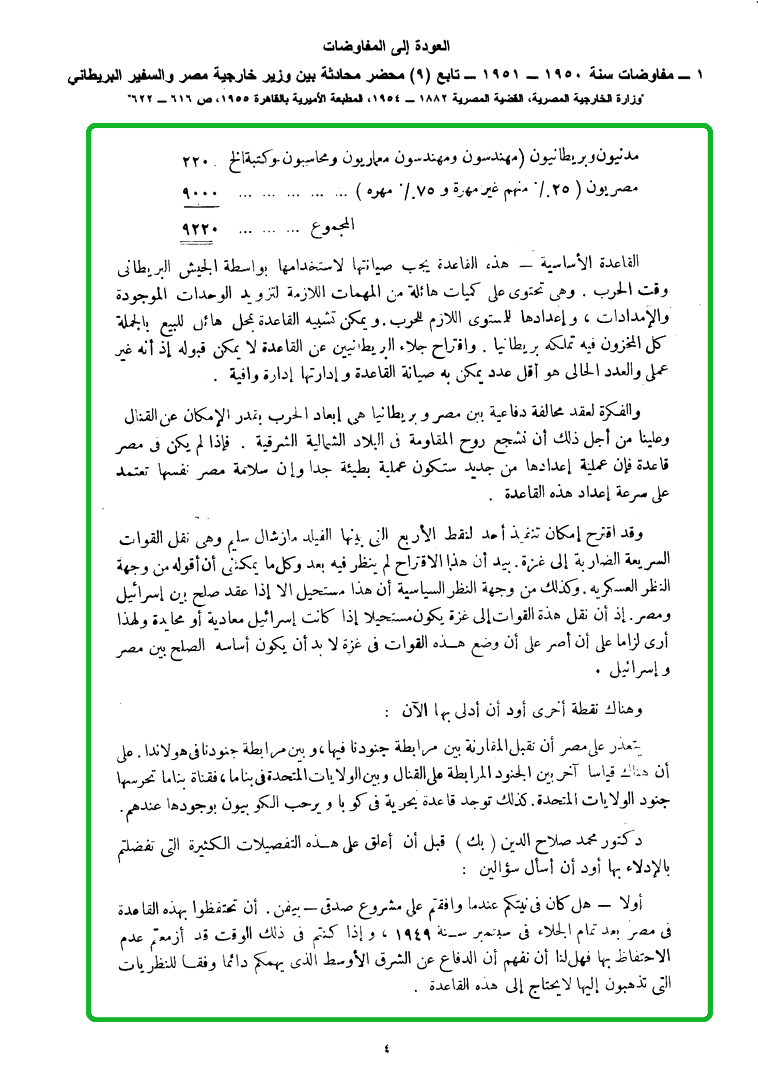 العودة إلى المفاوضات
١ ــ مفاوضات سنة ١٩٥٠ ــ ١٩٥١ ــ تابع (٩) محضر محادثة بين وزير خارجية مصر والسفير البريطاني
"وزارة الخارجية المصرية، القضية المصرية ١٨٨٢ ــ ١٩٥٤، المطبعة الأميرية بالقاهرة ١٩٥٥، ص ٦١٦ ــ ٦٢٢"
مدنيون وبريطانيون (مهندسون ومهندسون معماريون ومحاسبون وكتبة الخ ٢٢٠
مصريون ( ٢٥٪ منهم غير مهرة و ٧٥٪ مهره ) ... ... ... ... ... ٩٠٠٠
المجموع ... ... ... ٩٢٢٠
القاعدة الأساسية ــ هذه القاعدة يجب صيانتها لاستخدامها بواسطة الجيش البريطانى
وقت الحرب . وهى تحتوى على كميات هائلة من المهمات اللازمة لتزويد الوحدات الموجودة
والإمدادات ، وإعدادها للستوى اللازم للحرب. ويمكن تشبيه القاعدة بمحل هائل للبيع بالجملة
كل المخزون فيه تملكه بريطانيا . واقتراح جلاء البريطانيين عن القاعدة لا يمكن قبوله إذ أنه غير
عملى والعدد الحالى هو أقل عدد يمكن به صيانة القاعدة وإدارتها إدارة وافية .
والفكرة لعقد محالفة دفاعية بين مصر وبريطانيا هى إبعاد الحرب بقدر الإمكان عن القنال
وعلينا من أجل ذلك أن نشجع روح المقاومة فى البلاد الشمالية الشرقية . فإذا لم يكن فى مصر
قاعدة فإن عملية إعدادها من جديد ستكون عملية بطيئة جدا وإن سلامة مصر نفسها تعتمد
على سرعة إعداد هذه القاعدة .
وقد اقترح إمكان تنفيذ أحد لنقط الأربع التى بينها الفيلد مارشال سليم وهى نقل القوات
السريعة الضاربة إلى غزة . بيد أن هذا الاقتراح لم ينظر فيه بعد وكل ما يمكننى أن أقوله من وجهة
النظر العسكريه . وكذلك من وجهة النظر السياسية أن هذا مستحيل الا إذا عقد صلح بين إسرائيل
ومصر. إذ أن نقل هذة القوات إلى غزة يكون مستحيلا إذا كانت إسرائيل معادية أو محايدة ولهذا
أرى لزاما على أن أصر على أن وضع هــذه القوات فى غزة لا بد أن يكون أساسه الصلح بين مصر
وإسرائيل .
وهناك نقطة أخرى أود أن أدلى بها الآن :
يتعذر على مصر أن تقبل المقارنة بين مرابطة جنودنا فيها، وبين مرابطة جنودنا فى هولاندا. على
أن هناك قياسا آخر بين الجنود المرابطة على القنال وبين الولايات المتحدة فى بناما، فقناة بناما تحرسها
جنود الولايات المتحدة. كذلك توجد قاعدة بحرية فى كوبا ويرحب الكوبيون بوجودها عندهم.
دكتور محمد صلاح الدين ( بك ) قبل أن أعلق على هــذه التفصيلات الكثيرة التى تفضلتم
بالإدلاء بها أود أن أسأل سؤالين :
أولا ــ هل كان فى نيتكم عندما وافقتم على مشروع صدقى ــ بيفن. أن تحتفظوا بهذه القاعدة
فى مصر بعد تمام الجلاء فى سبتمبر سـنة ١٩٤٩ ، وإذا كنتم فى ذلك الوقت قد أزمعتم عدم
الاحتفاظ بها فهل لنا أن نفهم أن الدفاع عن الشرق الأوسط الذى يهمكم دائما وفقــا للنظريات
التى تذهبون إليها لايحتاج إلى هذه القاعدة .
٤